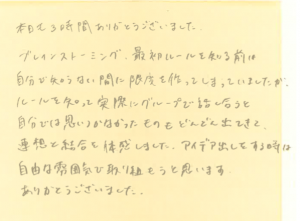 本日も3時間ありがとうございました。
ブレインストーミング、最初ルールを知る前は
自分で知らない間に限度を作ってしまっていましたが、
ルールを知って実際にグループで話し合うと
自分では思いつかなかったものもどんどん出てきて、
連想と結合を体感しました。アイデア出しをする時は
自由な雰囲気で取り組もうと思います
ありがとうございました。